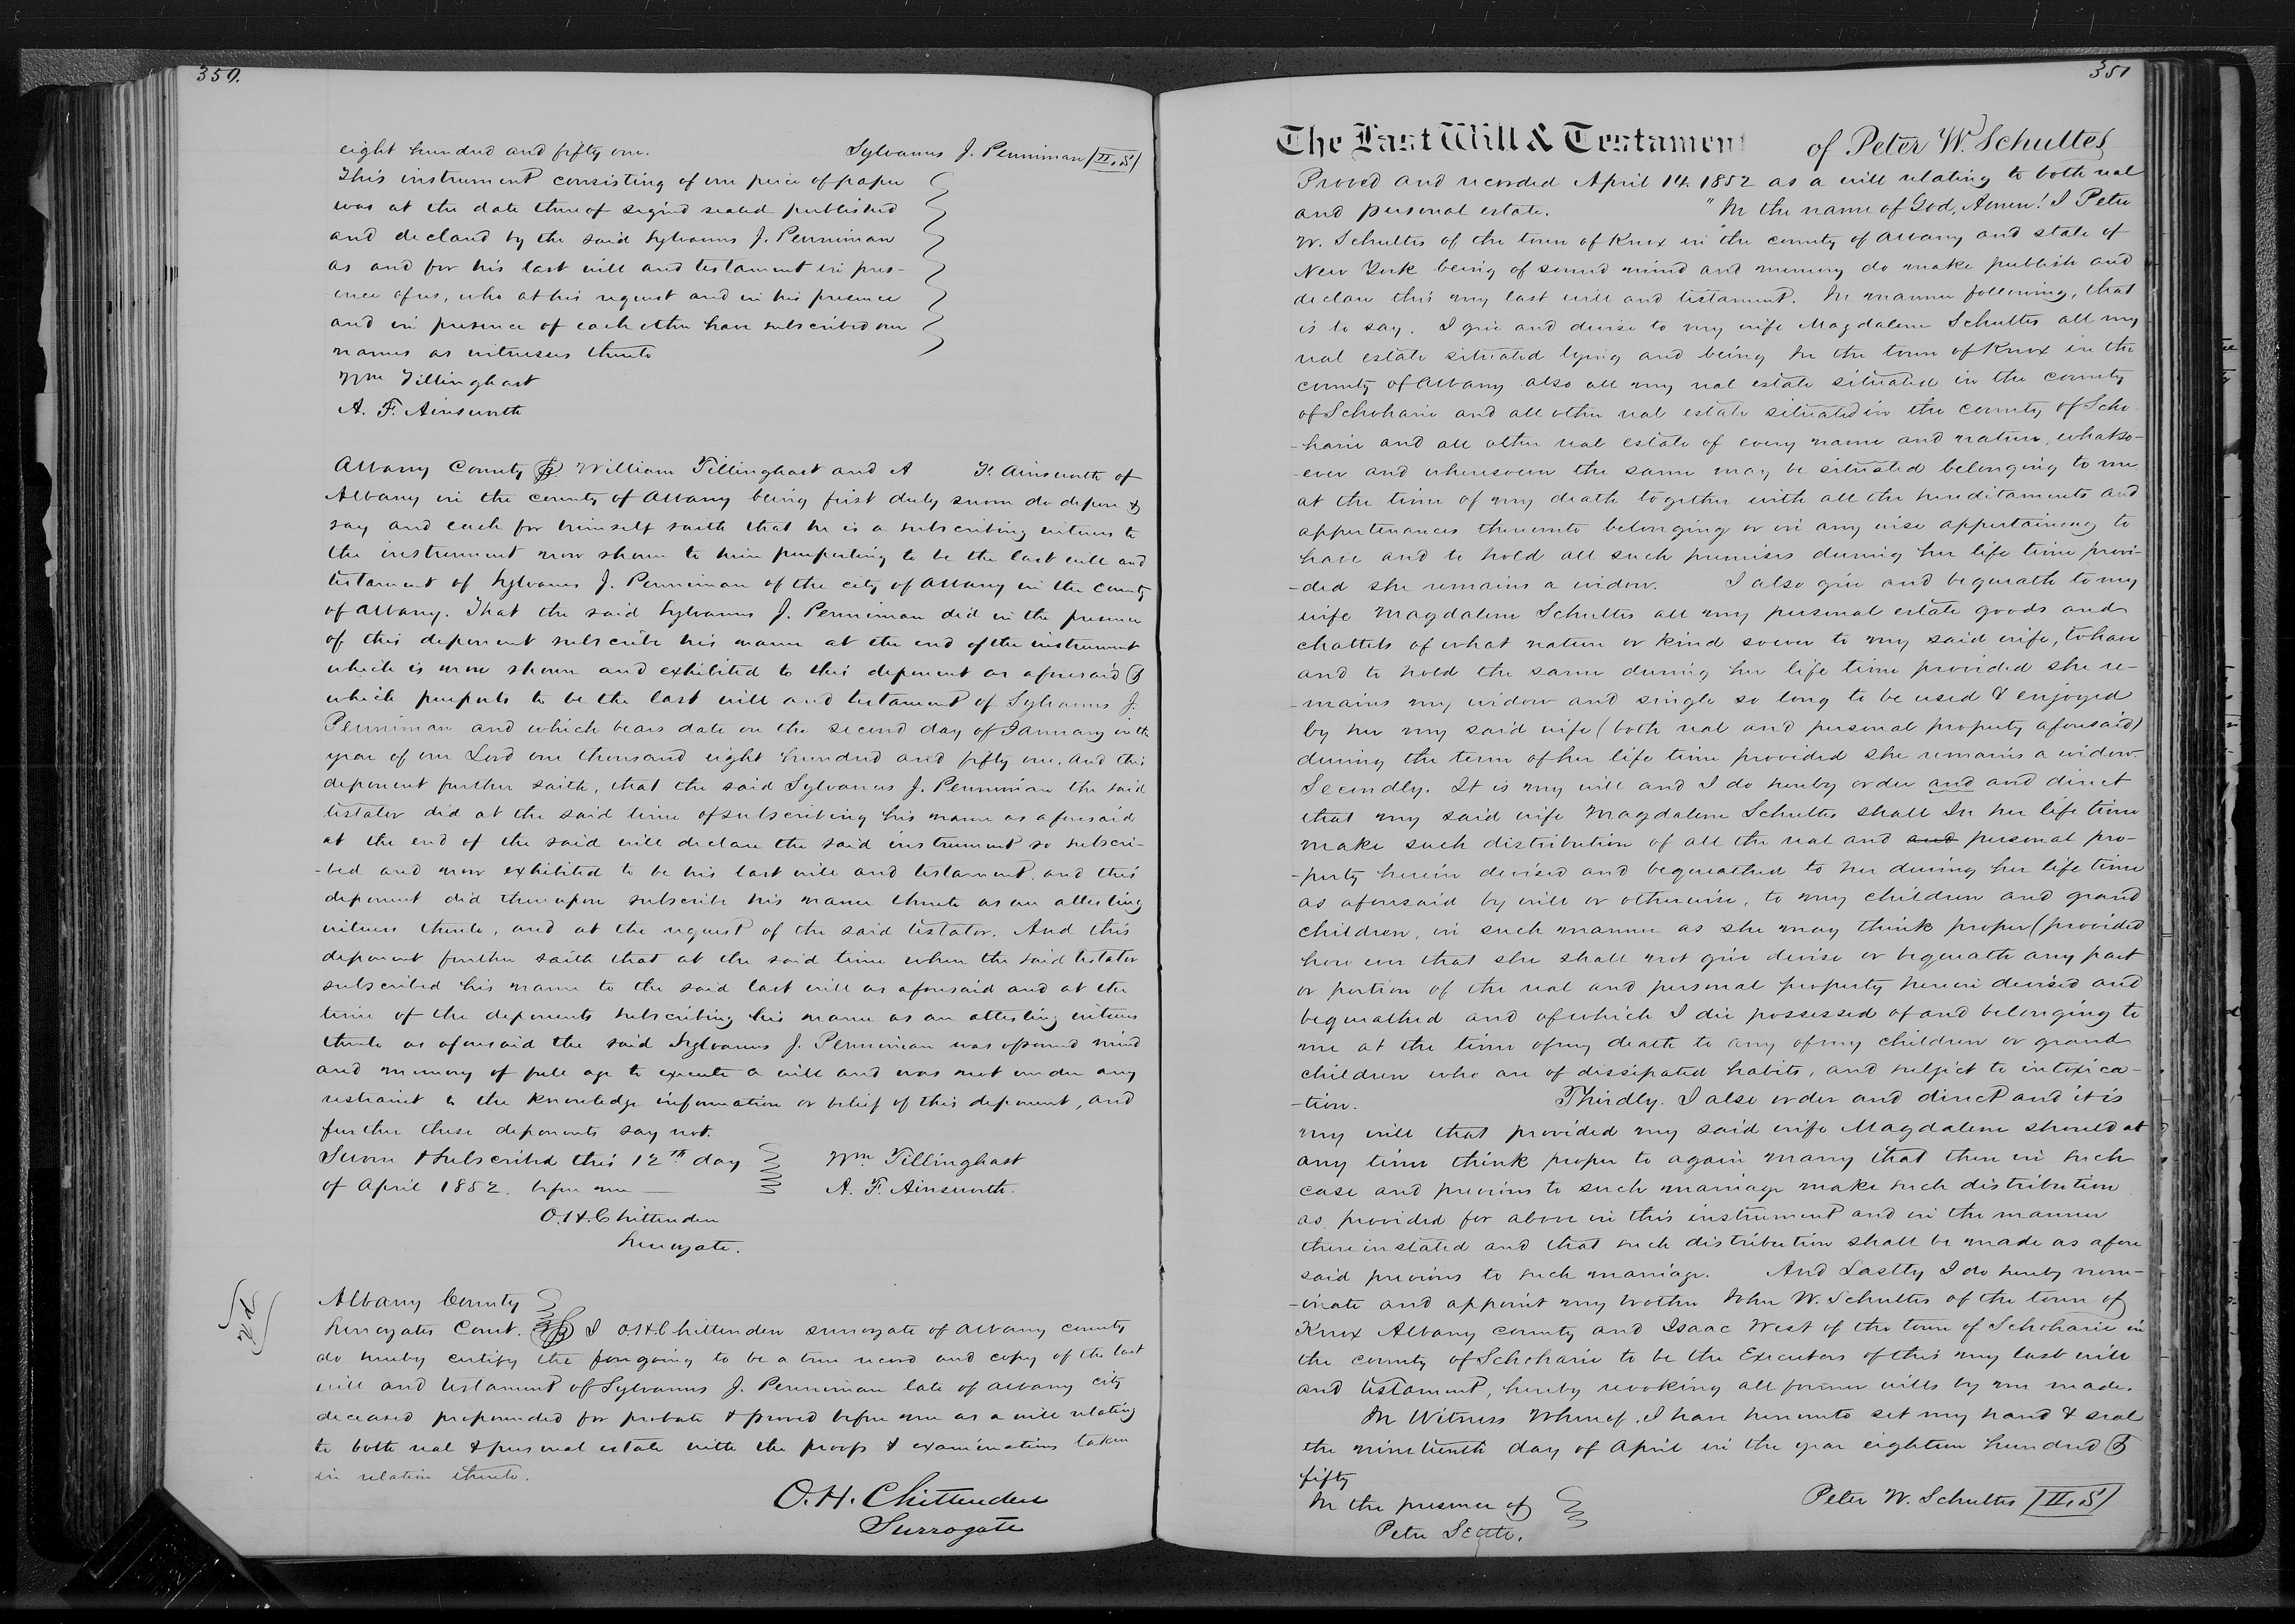 350.
eight hundred and fifty one. Sylvanus J. Penniman [L.S]
This instrument consisting of one peice of paper
was at the date thereof signed sealed published
and declared by the said Sylvanus J. Penniman
as and for his last will and testament in pres-
ence of us, who at his request and in his presence
and in presence of each other have subscribed our
names as witnesses thereto
Wm Tillinghast
A. F. Ainsworth
Albany County SS. William Tillinghast and A F. Ainsworth of
Albany in the county of Albany being first duly sworn do depose &
say and each for himself saith that he is a subscribing witness to
the instrument now shown to him purporting to be the last will and
testament of Sylvanus J. Penniman of the city of Albany in the county
of Albany. That the said Sylvanus J. Penniman did in the presence
of this deponent subscribe his name at the end of the instrument
which is now shown and exhibited to this deponent as aforesaid &
which purports to be the last will and testament of Sylvanus J.
Penniman and which bears date on the second day of January in the
year of our Lord one thousand eight hundred and fifty one. And this
deponent further saith, that the said Sylvanus J. Penniman the said
testator did at the said time of subscribing his name as aforesaid
at the end of the said will declare the said instrument so subscri-
-bed and now exhibited to be his last will and testament, and this
deponent did thereupon subscribe his name thereto as an attesting
witness thereto, and at the request of the said testator. And this
deponent further saith that at the said time when the said testator
subscribed his name to the said last will as aforesaid and at the
time of the deponents subscribing his name as an attesting witness
thereto as aforesaid the said Sylvanus J. Penniman was of sound mind
and memory of full age to execute a will and was not under any
restraint to the knowledge information or belief of this deponent, and
further these deponents say not.
Sworn & subscribed this 12th day Wm. Tillinghast
of April 1852. before me — A. F. Ainsworth.
O. H. Chittenden
Surrogate.
Albany County
Surrogates Court. SS I O. H. Chittenden surrogate of Albany county
do hereby certify the foregoing to be a true record and copy of the last
will and testament of Sylvanus J. Penniman late of Albany city
deceased propounded for probate & proved before me as a will relating
to both real & personal estate with the proofs & examinations taken
in relation thereto.
O. H. Chittenden
Surrogate
351
The Last Will & Testament of Peter W. Schultes
Proved and recorded April 14. 1852 as a will relating to both real
and personal estate. "In the name of God, Amen! I Peter
W. Schultes of the town of Knox in the county of Albany and state of
New York being of sound mind and memory do make publish and
declare this my last will and testament. In manner following, that
is to say. I give and devise to my wife Magdalene Schultes all my
real estate situated lying and being In the town of Knox in the
county of Albany also all my real estate situated in the county
of Schoharie and all other real estate situated in the county of Scho
-harie and all other real estate of every name and nature, whatso-
-ever and wheresoever the same may be situated belonging to me
at the time of my death together with all the hereditaments and
appertenances thereunto belonging or in any wise appertaining to
have and to hold all such premises during her life time provi-
-ded she remains a widow. I also give and bequeath to my
wife Magdalene Schultes all my personal estate goods and
chattels of what nature or kind soever to my said wife, to have
and to hold the same during her life time provided she re-
-mains my widow and single so long to be used & enjoyed
by her my said wife (both real and personal property aforesaid)
during the term of her life time provided she remains a widow.
Secondly. It is my will and I do hereby order and and direct
that my said wife Magdalene Schultes shall In her life time
make such distribution of all the real and and personal pro-
-perty herein devised and bequeathed to her during her life time
as aforesaid by will or otherwise, to my children and grand
children, in such manner as she may think proper (provided
how ever that she shall not give devise or bequeath any part
or portion of the real and personal property herein devised and
bequeathed and of which I die possessed of and belonging to
me at the time of my death to any of my children or grand
children who are of dissipated habits, and subject to intoxica-
-tion. Thirdly. I also order and direct and it is
my will that provided my said wife Magdalene should at
any time think proper to again marry that then in such
case and previous to such marriage make such distribution
as provided for above in this instrument and in the manner
therein stated and that such distribution shall be made as afore
said previous to such marriage. And Lastly I do hereby nom-
-inate and appoint my brother John W. Schultes of the town of
Knox Albany county and Isaac West of the town of Schoharie in
the county of Schoharie to be the Executors of this my last will
and testament, hereby revoking all former wills by me made.
In Witness Whereof, I have hereunto set my hand & seal
the nineteenth day of April in the year eighteen hundred &
fifty
In the presence of Peter W. Schultes [L.S]
Peter